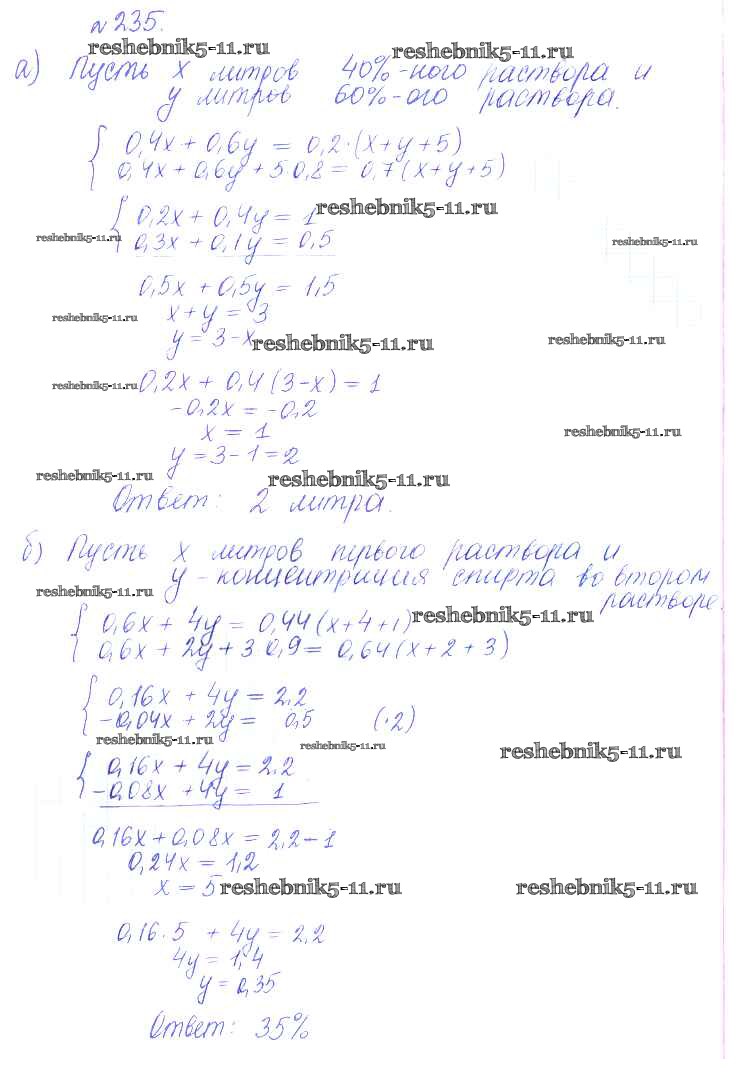 №235.
reshebnik5-11.ru reshebnik5-11.ru
а) Пусть x литров 40%-ного раствора и
y литров 60%-ого раствора.
0,4x + 0,6y = 0,2·(x+y+5)
0,4x + 0,6y + 5·0,8 = 0,7(x+y+5)
0,2x + 0,4y = 1 reshebnik5-11.ru
reshebnik5-11.ru 0,3x + 0,1y = 0,5 reshebnik5-11.ru
0,5x + 0,5y = 1,5
reshebnik5-11.ru x + y = 3
y = 3-x reshebnik5-11.ru reshebnik5-11.ru
reshebnik5-11.ru 0,2x + 0,4(3-x) = 1
-0,2x = -0,2
x = 1 reshebnik5-11.ru
y = 3-1 = 2
reshebnik5-11.ru reshebnik5-11.ru
Ответ: 2 литра.
б) Пусть x литров первого раствора и
y - концентрация спирта во втором
reshebnik5-11.ru растворе.
0,6x + 4y = 0,44(x+4+1) reshebnik5-11.ru
0,6x + 2y + 3 0,9 = 0,64(x+2+3)
0,16x + 4y = 2,2
-0,04x + 2y = 0,5 (·2)
reshebnik5-11.ru reshebnik5-11.ru reshebnik5-11.ru
0,16x + 4y = 2,2
-0,08x + 4y = 1
0,16x + 0,08x = 2,2-1
0,24x = 1,2
x = 5 reshebnik5-11.ru reshebnik5-11.ru
0,16·5 + 4y = 2,2
4y = 1,4
y = 0,35
Ответ: 35%